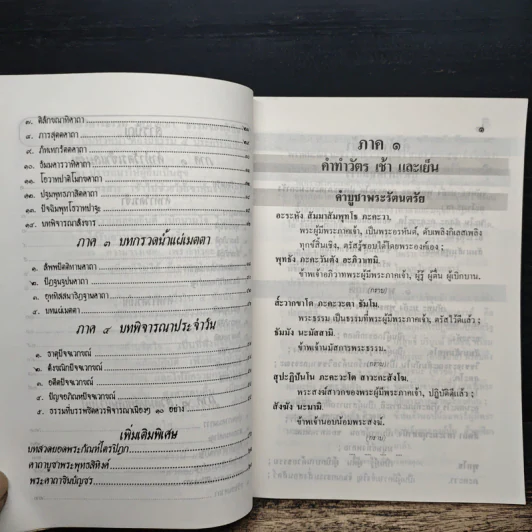 ๗. ติลักขณาทิคาถา
๘. ภารสุตตคาถา
๙. ภัทเทกรัตตคาถา
๑๐. ธัมมคารวาทิคาถา
๑๑. โอวาทปาติโมกขคาถา
๑๒. ปฐมพุทธภาสิตคาถา
๑๓. ปัจฉิมพุทโธวาทปาฐะ
๑๔. บทพิจารณาสังขาร
ภาค ๓ บทกรวดน้ำแผ่เมตตา
๑. สัพพปัตติทานคาถา
๒.
๓.
๔. บทแผ่เมตตา
ภาค ๔ บทพิจารณาประจำวัน
๑. ธาตุปัจจเวกขณ์
๒. ตังขณิกปัจจเวกขณ์
๓. อตีตปัจจเวกขณ์
๔.
๕. ธรรมที่บรรพชิตควรพิจารณาเนืองๆ ๑๐ อย่าง
เพิ่มเติมพิเศษ
บทสวดยอดพระกัณฑ์ไตรปิฎก
คาถาบูชาพระพุทธสิหิงค์
พระคาถาชินบัญชร
๑
ภาค ๑
คำทำวัตร เช้า และเย็น
คำบูชาพระรัตนตรัย
อะระหัง สัมมาสัมพุทโธ ภะคะวา.
พระผู้มีพระภาคเจ้า, เป็นพระอรหันต์, ดับเพลิงกิเลสเพลิง
ทุกข์สิ้นเชิง, ตรัสรู้ชอบได้โดยพระองค์เอง ;
พุทธัง ภะคะวันตัง อะภิวาเทมิ.
ข้าพเจ้าอภิวาทพระผู้มีพระภาคเจ้า, ผู้รู้ ผู้ตื่น ผู้เบิกบาน.
(กราบ)
สวากขาโต ภะคะวะตา ธัมโม.
พระธรรม เป็นธรรมที่พระผู้มีพระภาคเจ้า, ตรัสไว้ดีแล้ว ;
ธัมมัง นะมัสสามิ.
ข้าพเจ้านมัสการพระธรรม.
(กราบ)
สุปะฏิปันโน ภะคะวะโต สาวะกะสังโฆ.
พระสงฆ์สาวกของพระผู้มีพระภาคเจ้า, ปฏิบัติดีแล้ว ;
สังฆัง นะมามิ.
ข้าพเจ้านอบน้อมพระสงฆ์.
(กราบ)